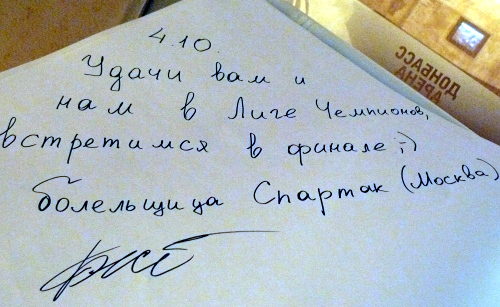 4.10.
Удачи вам и
нам в Лиге Чемпионов,
встретимся в финале ;-)
болельщица Спартак (Москва)
ДОНБАСС
АРЕНА